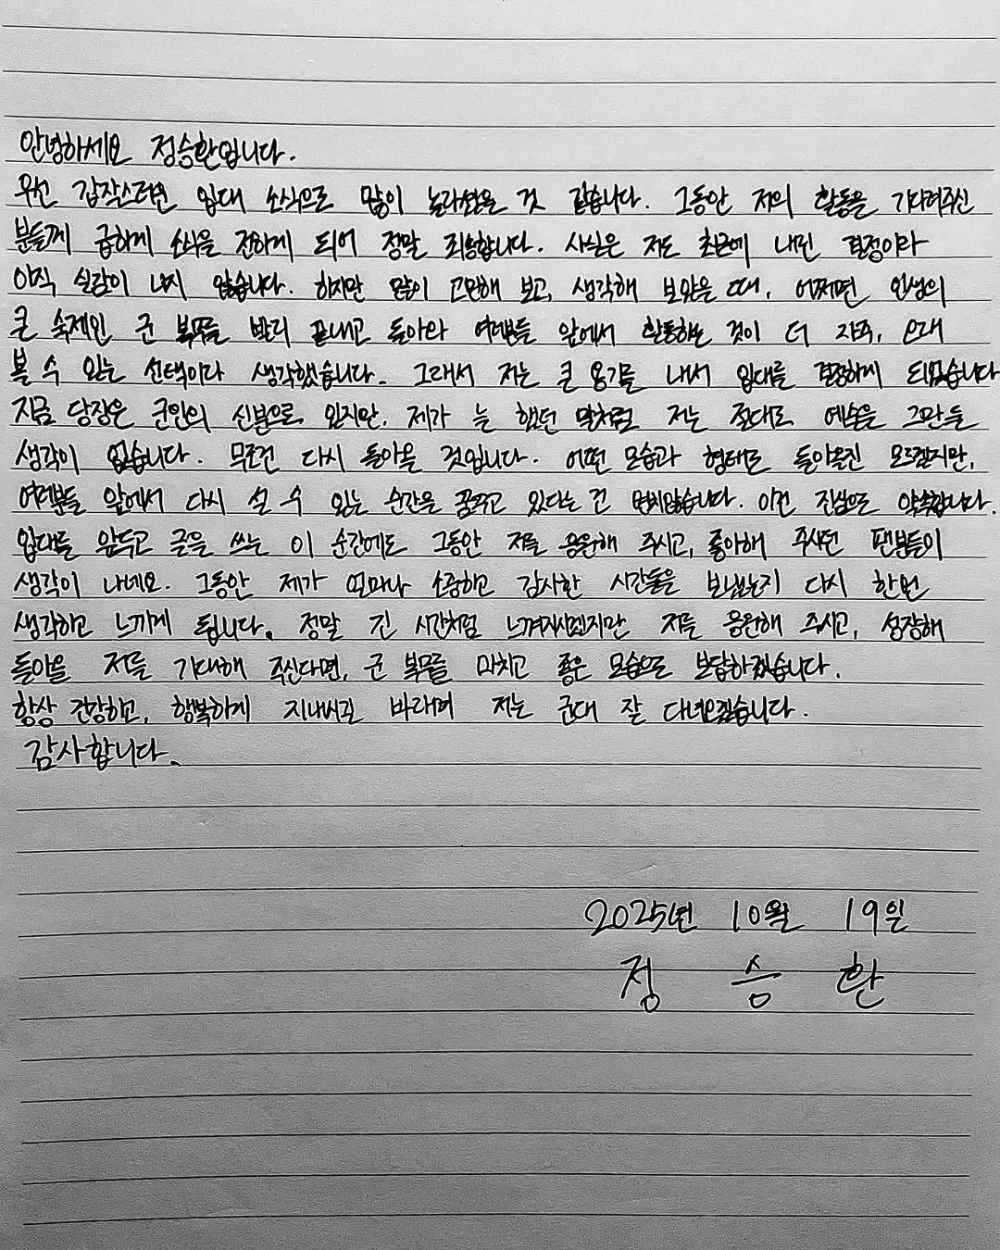 안녕하세요 정승환입니다.
우선 갑작스러운 입대 소식으로 많이 놀라셨을 것 같습니다. 그동안 저의 활동을 기다려주신
분들께 급하게 소식을 전하게 되어 정말 죄송합니다. 사실은 저도 최근에 내린 결정이라
아직 실감이 나지 않습니다. 하지만 많이 고민해 보고, 생각해 보았을 때, 어쩌면 인생의
큰 숙제인 군 복무를 빨리 끝내고 돌아와 여러분들 앞에서 활동하는 것이 더 자주, 오래
볼 수 있는 선택이라 생각했습니다. 그래서 저는 큰 용기를 내서 입대를 결정하게 되었습니다
지금 당장은 군인의 신분으로 있지만, 제가 늘 했던 말처럼 저는 절대로 예술을 그만둘
생각이 없습니다. 무조건 다시 돌아올 것입니다. 어떤 모습과 형태로 돌아올진 모르겠지만,
여러분들 앞에서 다시 설 수 있는 순간을 꿈꾸고 있다는 건 변치않습니다. 이건 진심으로 약속합니다.
입대를 앞두고 글을 쓰는 이 순간에도 그동안 저를 응원해 주시고, 좋아해 주시던 팬분들이
생각이 나네요. 그동안 제가 얼마나 소중하고 감사한 시간들을 보냈는지 다시 한번
생각하고 느끼게 됩니다. 정말 긴 시간처럼 느껴지시겠지만 저를 응원해 주시고, 성장해
돌아올 저를 기대해 주신다면, 군 복무를 마치고 좋은 모습으로 보답하겠습니다.
항상 건강하고, 행복하게 지내시길 바라며 저는 군대 잘 다녀오겠습니다.
감사합니다.
2025년 10월 19일
정 승 환